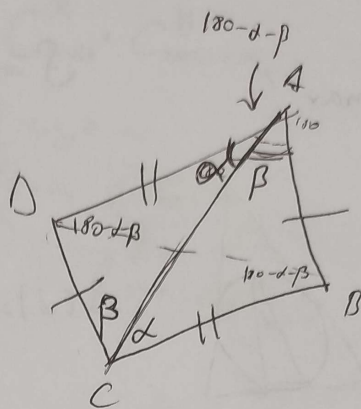 180-α-β
A
180
α
β
D
180-α-β
180-α-β
B
β
α
C